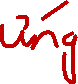 ứng